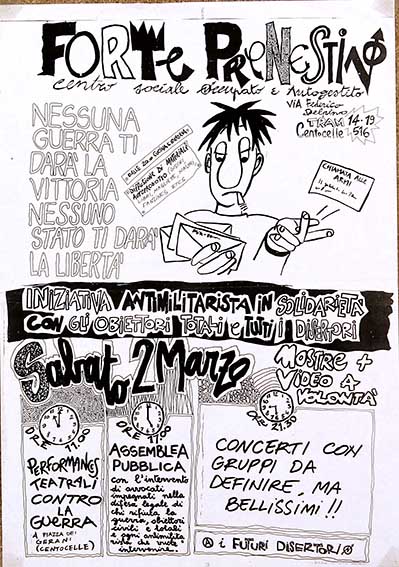 FORTE PRENESTINO
centro sociale Occupato e Autogestito
VIA Federico
Delpino
TRAM 14-19
Centocelle 516
NESSUNA
GUERRA TI
DARA' LA
VITTORIA
NESSUNO
STATO TI DARA'
LA LIBERTA'
DIFFUSIONE DI MATERIALE
CHIAMATA ALLE
ARMI
INIZIATIVA ANTIMILITARISTA IN SOLIDARIETÀ
CON GLI OBIETTORI TOTALI E TUTTI I DISERTORI
Sabato 2 Marzo
MOSTRE +
VIDEO A
VOLONTÀ
ORE 11.00
PERFORMANCES
TEATRALI
CONTRO
LA
GUERRA
A PIAZZA DEI
GERANI
(CENTOCELLE)
ORE 17.00
ASSEMBLEA
PUBBLICA
con l'intervento
di avvocati
impegnati nella
difesa legale di
chi rifiuta la
guerra, obiettori
civili e totali
e ogni antimilita
rista che vuole
intervenire.
ORE 21.30
CONCERTI CON
GRUPPI DA
DEFINIRE, MA
BELLISSIMI!!
Ⓐ i FUTURI DISERTORI